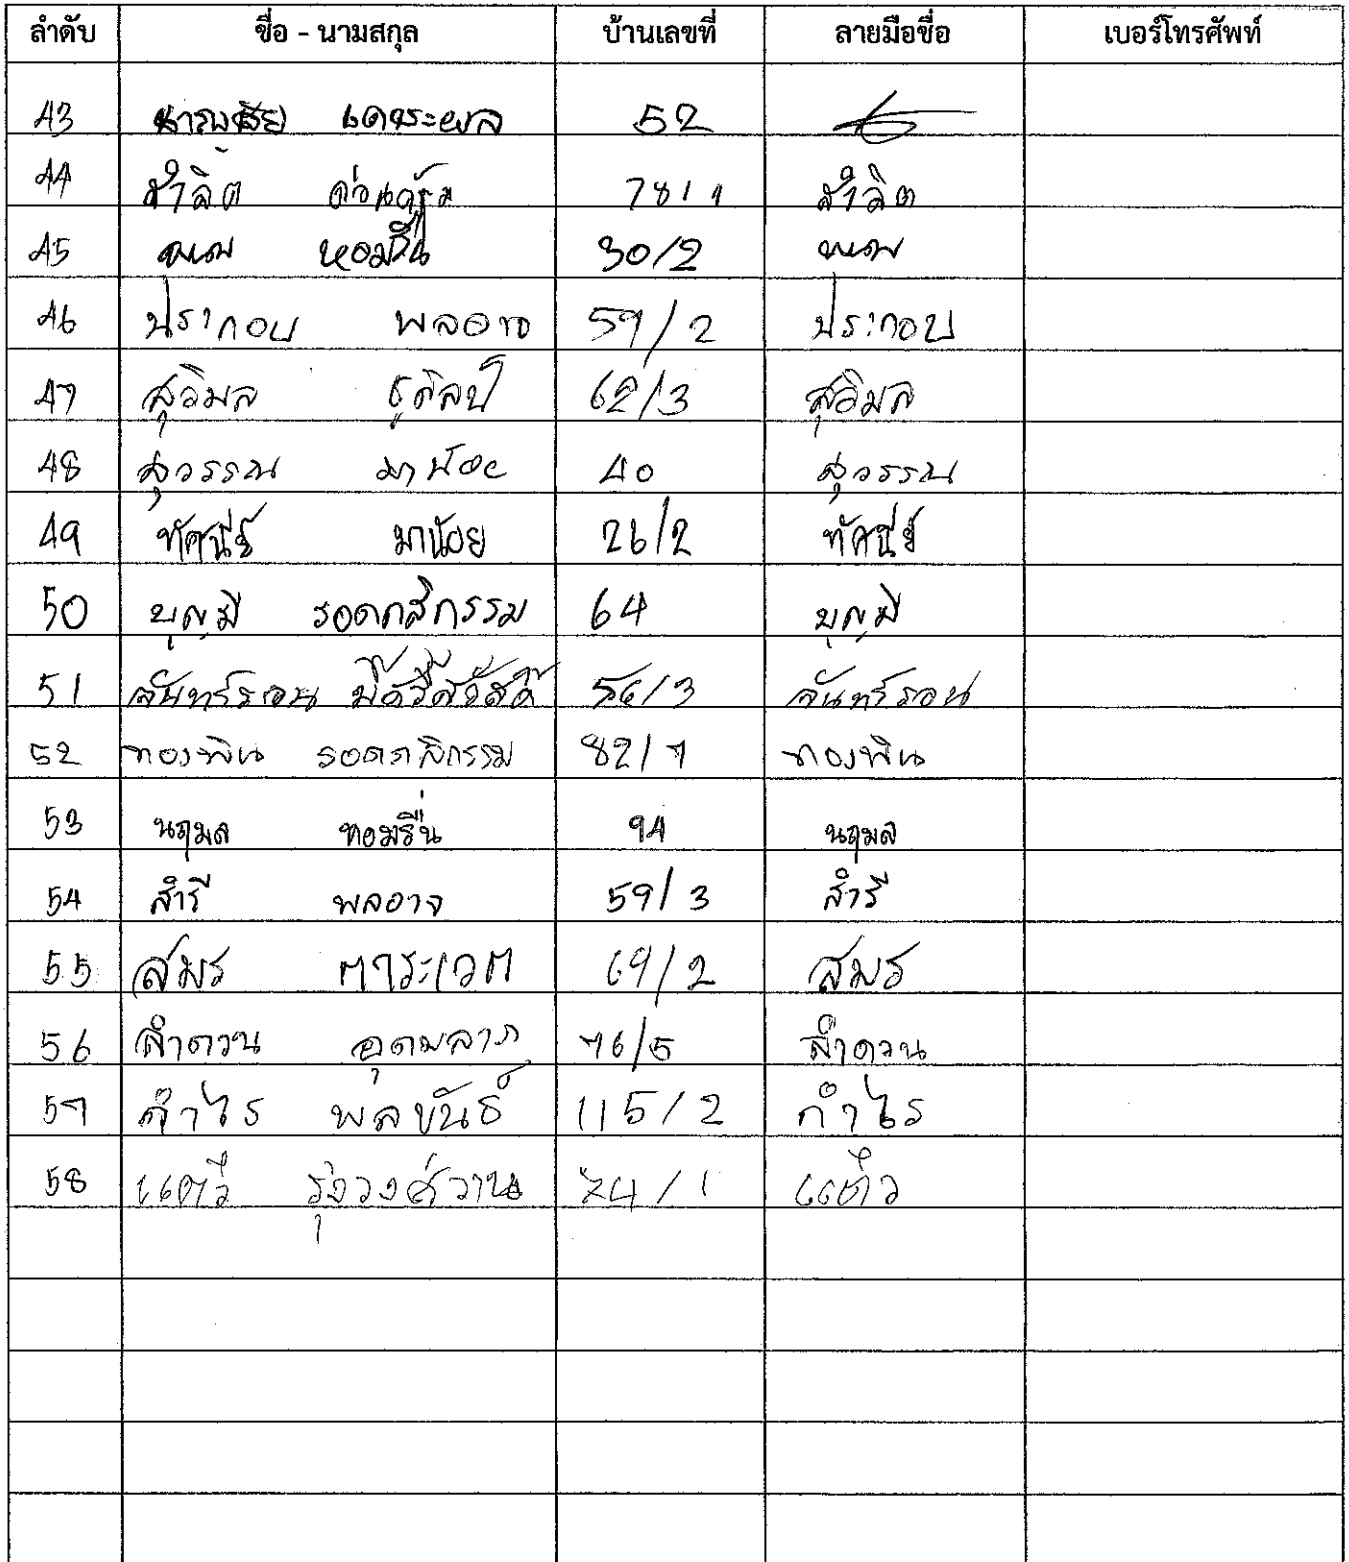 ลำดับ ชื่อ - นามสกุล บ้านเลขที่ ลายมือชื่อ เบอร์โทรศัพท์
43 52
44 สำลิต 78/1 สำลิต
45 หอมรื่น 30/2
46 ประกอบ พลอาจ 59/2 ประกอบ
47 สุวิมล ธูศิลป์ 62/3 สุวิมล
48 สุวรรณ มาน้อย 40 สุวรรณ
49 ทัศนีย์ มาน้อย 26/2 ทัศนีย์
50 บุญมี รอดกสิกรรม 64 บุญมี
51 จันทร์รอน 56/3 จันทร์รอน
52 ทองพิน รอดกสิกรรม 82/1 ทองพิน
53 นฤมล หอมรื่น 94 นฤมล
54 สำรี พลอาจ 59/3 สำรี
55 สมร ตาระเวต 69/2 สมร
56 ลำดวน อุดมลาภ 76/5 ลำดวน
57 กำไร พลขันธ์ 115/2 กำไร
58 แต๋ว 74/1 แต๋ว